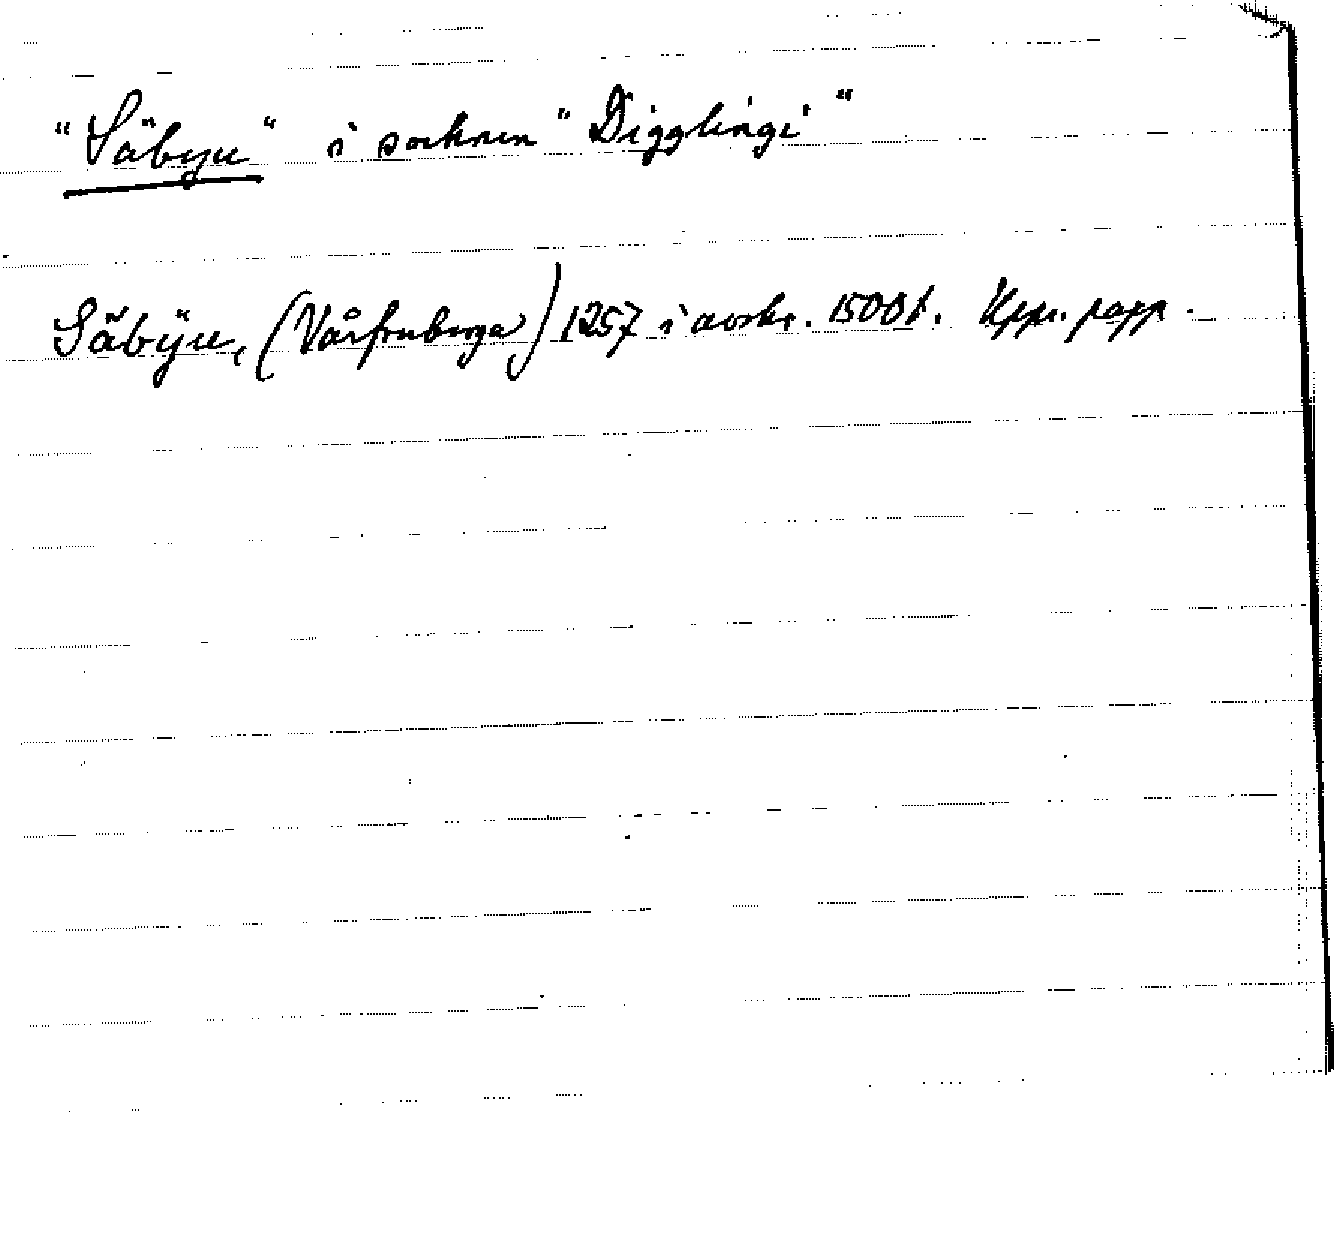 "Säbyu" i socknen "Digglingi"
Säbÿu, (Vårfruberga) 1257 i avskr. 1500t. Kpr. papp.